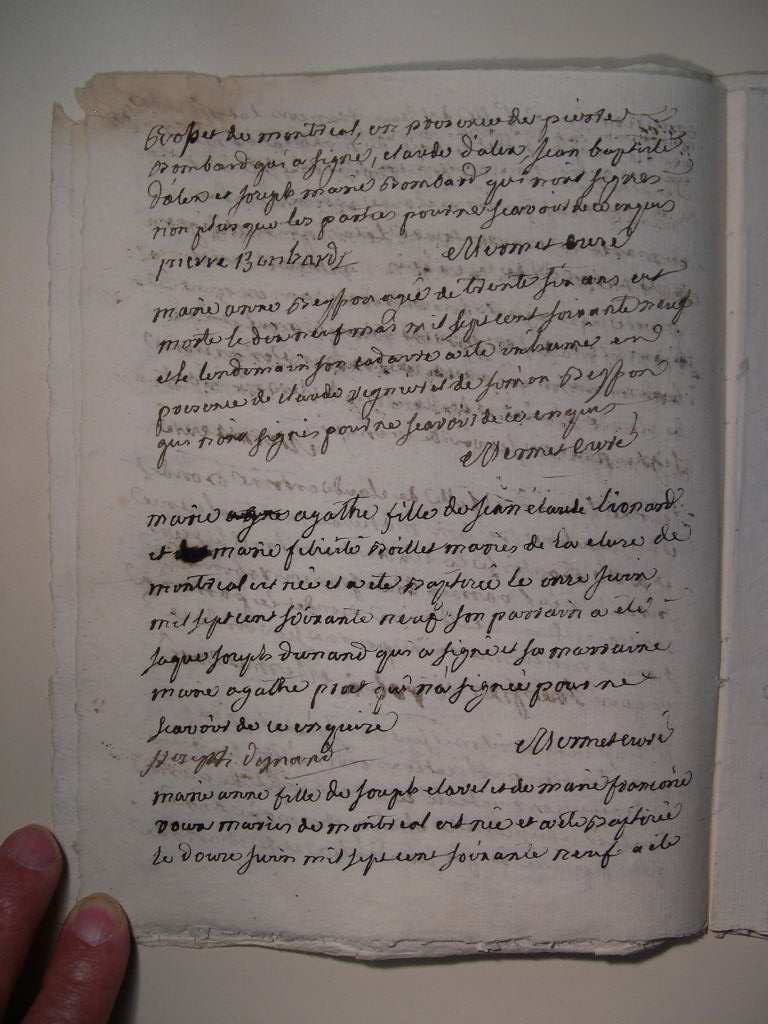 et de montreal, en presence de pierre
Bombard qui a signé, claude d'alex, jean baptiste
d'alex et joseph marie Bombard qui n'ont signes
non plus que les parties pour ne scavoir de ce enquis
pierre Bonbard
Mermet curé
marie anne Beysson agée de trente six ans est
morte le dix neuf mai mil sept cent soixante neuf
et le lendemain son cadavre a ete inhumé en
presence de claude et de simon Beysson
qui n'ont signés pour ne scavoir de ce enquis
Mermet Curé
marie agathe fille de jean claude lionard
et marie felicité mariés de la cluse de
montreal est née et a ete Baptisée le onze juin
mil sept cent soixante neuf son parrain a été
jaque joseph dunand qui a signé et sa marraine
marie agathe qui n'a signée pour ne
scavoir de ce enquise
joseph dunand
Mermet curé
marie anne fille de joseph clavel et de marie françoise
mariés de montreal est née et a ete Baptisée
le douze juin mil sept cent soixante neuf a ete